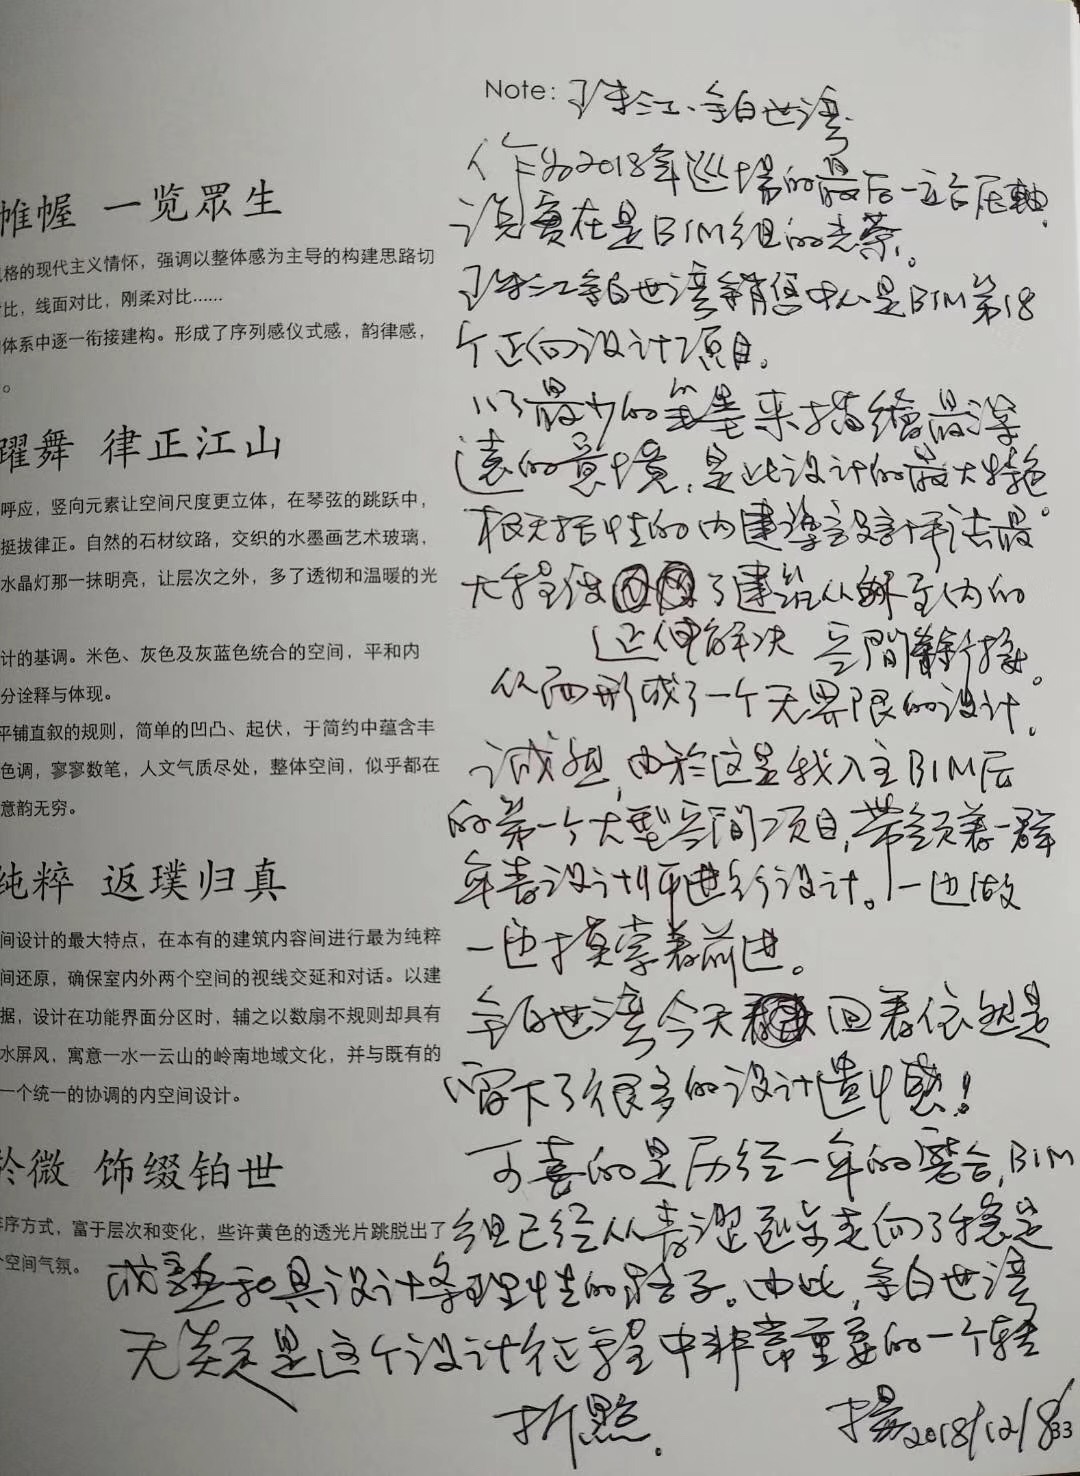 帷幄 一览眾生
格的现代主义情怀，强调以整体感为主导的构建思路切
对比，线面对比，刚柔对比......
体系中逐一衔接建构。形成了序列感仪式感，韵律感，
。
躍舞 律正江山
呼应，竖向元素让空间尺度更立体，在琴弦的跳跃中，
挺拔律正。自然的石材纹路，交织的水墨画艺术玻璃，
水晶灯那一抹明亮，让层次之外，多了透彻和温暖的光
计的基调。米色、灰色及灰蓝色统合的空间，平和内
分诠释与体现。
平铺直叙的规则，简单的凹凸、起伏，于简约中蕴含丰
色调，寥寥数笔，人文气质尽处，整体空间，似乎都在
意韵无穷。
纯粹 返璞归真
间设计的最大特点，在本有的建筑内容间进行最为纯粹
间还原，确保室内外两个空间的视线交延和对话。以建
据，设计在功能界面分区时，辅之以数扇不规则却具有
水屏风，寓意一水一云山的岭南地域文化，并与既有的
一个统一的协调的内空间设计。
於微 饰缀铂世
序方式，富于层次和变化，些许黄色的透光片跳脱出了
空间气氛。
Note: 珠江·铂世湾
作为2018年巡場的最后一站压軸，
说實在是BIM组的光荣。
珠江铂世湾銷售中心是BIM第18
个正向设计项目。
以最少的筆墨来描繪最深
遠的意境，是此设计的最大特色。
大程度了建筑从外至内的
延伸解决 空間
从而形成了一个无界限的设计。
诚然，由於这是我入主BIM层
的第一个大型空間项目，带领着一群
年青设计师進行设计。一边做
一边摸索着前进。
铂世湾今天回看依然是
留下了很多的设计遗憾！
可喜的是历经一年的磨合，BIM
组已经从青涩逐步走向了稳定
成熟和具设计条理性的路子。由此，铂世湾
无疑是这个设计征程中非常重要的一个转
折點。
揚2018/12/8
33